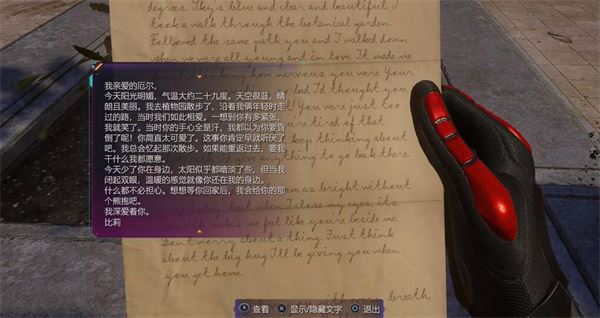 degrees. Sky's blue and clear and beautiful. I
took a walk through the botanical garden.
Followed the same path you and I walked down
when we were all young and in love. It made me
how nervous you were. Your
bad I'd thought you
You were just too
you're tired of that
keep thinking about
anything to go back there
我亲爱的厄尔,
今天阳光明媚，气温大约二十九度。天空很蓝，晴
朗且美丽。我去植物园散步了，沿着我俩年轻时走
过的路，当时我们如此相爱。一想到你有多紧张，
我就笑了。当时你的手心全是汗，我都以为你要昏
倒了呢！你简直太可爱了。这事你肯定早就听厌了
吧。我总会忆起那次散步。如果能重返过去，要我
干什么我都愿意。
今天少了你在身边，太阳似乎都暗淡了些，但当我
闭起双眼，温暖的感觉就像你还在我的身边。
什么都不必担心。想想等你回家后，我会给你的那
个熊抱吧。
我深爱着你。
比莉
as bright without
but when I close my eyes, its
makes me feel like you're beside me
Don't worry about a thing. Just think
about the big hug I'll be giving you when
you get home.
with every breath,
查看
显示/隐藏文字
退出